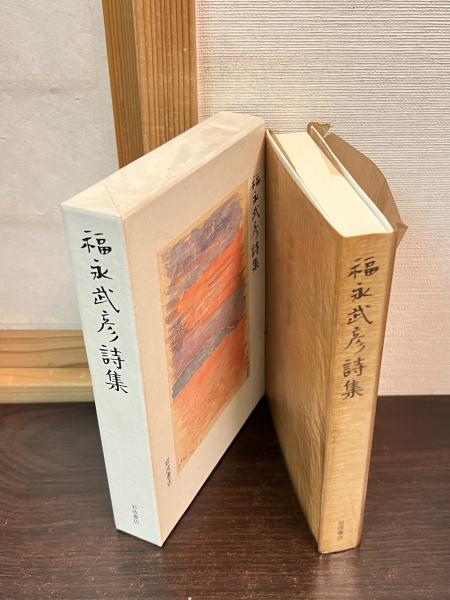 福永武彦詩集
岩波書店
福永武彦詩集
岩波書店
福永武彦詩集
岩波書店